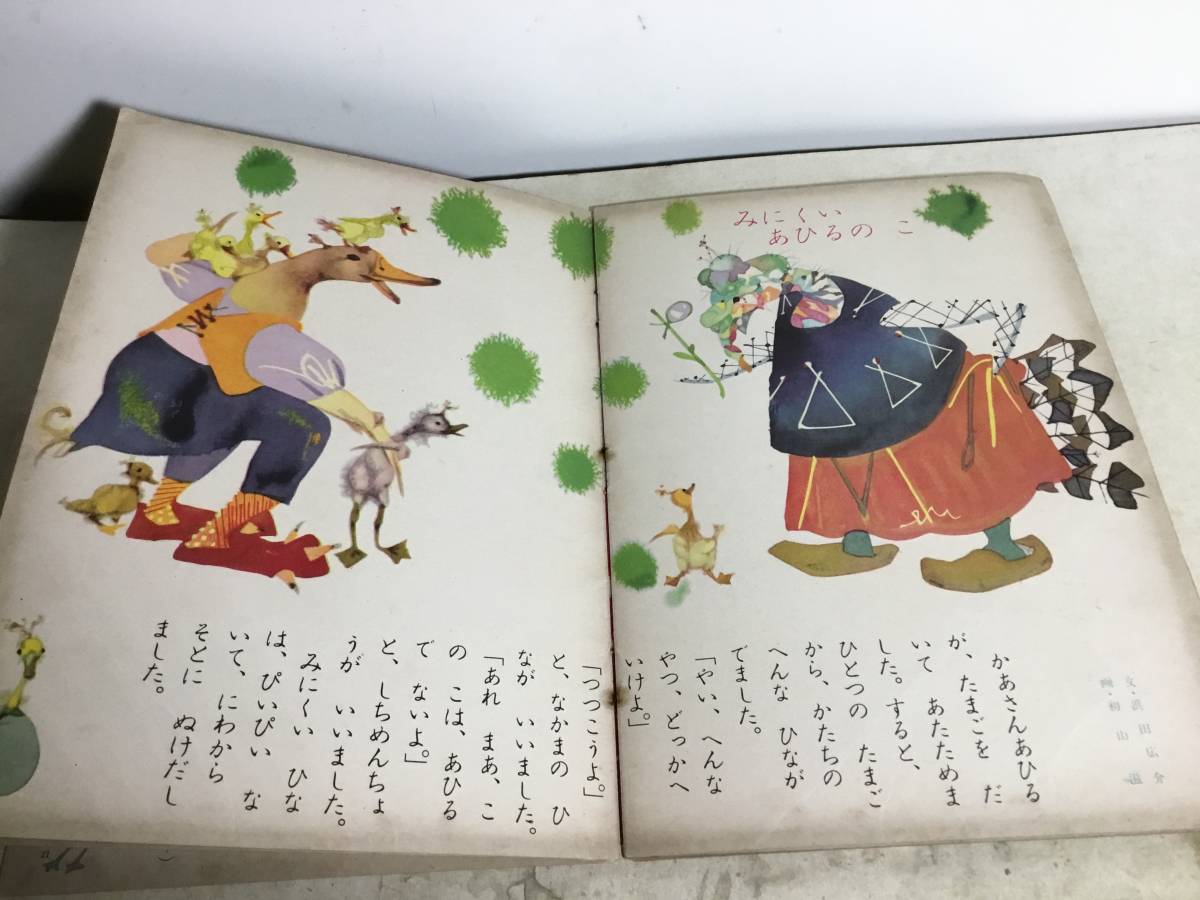 みにくい
あひるの こ
文・浜田広介
画・初山 滋
かあさんあひる
が、たまごを だ
いて あたためま
した。すると、
ひとつの たまご
から、かたちの
へんな ひなが
でました。
「やい、へんな
やつ、どっかへ
いけよ。」
「つっこうよ。」
と、なかまの ひ
なが いいました。
「あれ まあ、こ
の こは、あひる
で ないよ。」
と、しちめんちょ
うが いいました。
みにくい ひな
は、ぴいぴい な
いて、にわから
そとに ぬけだし
ました。